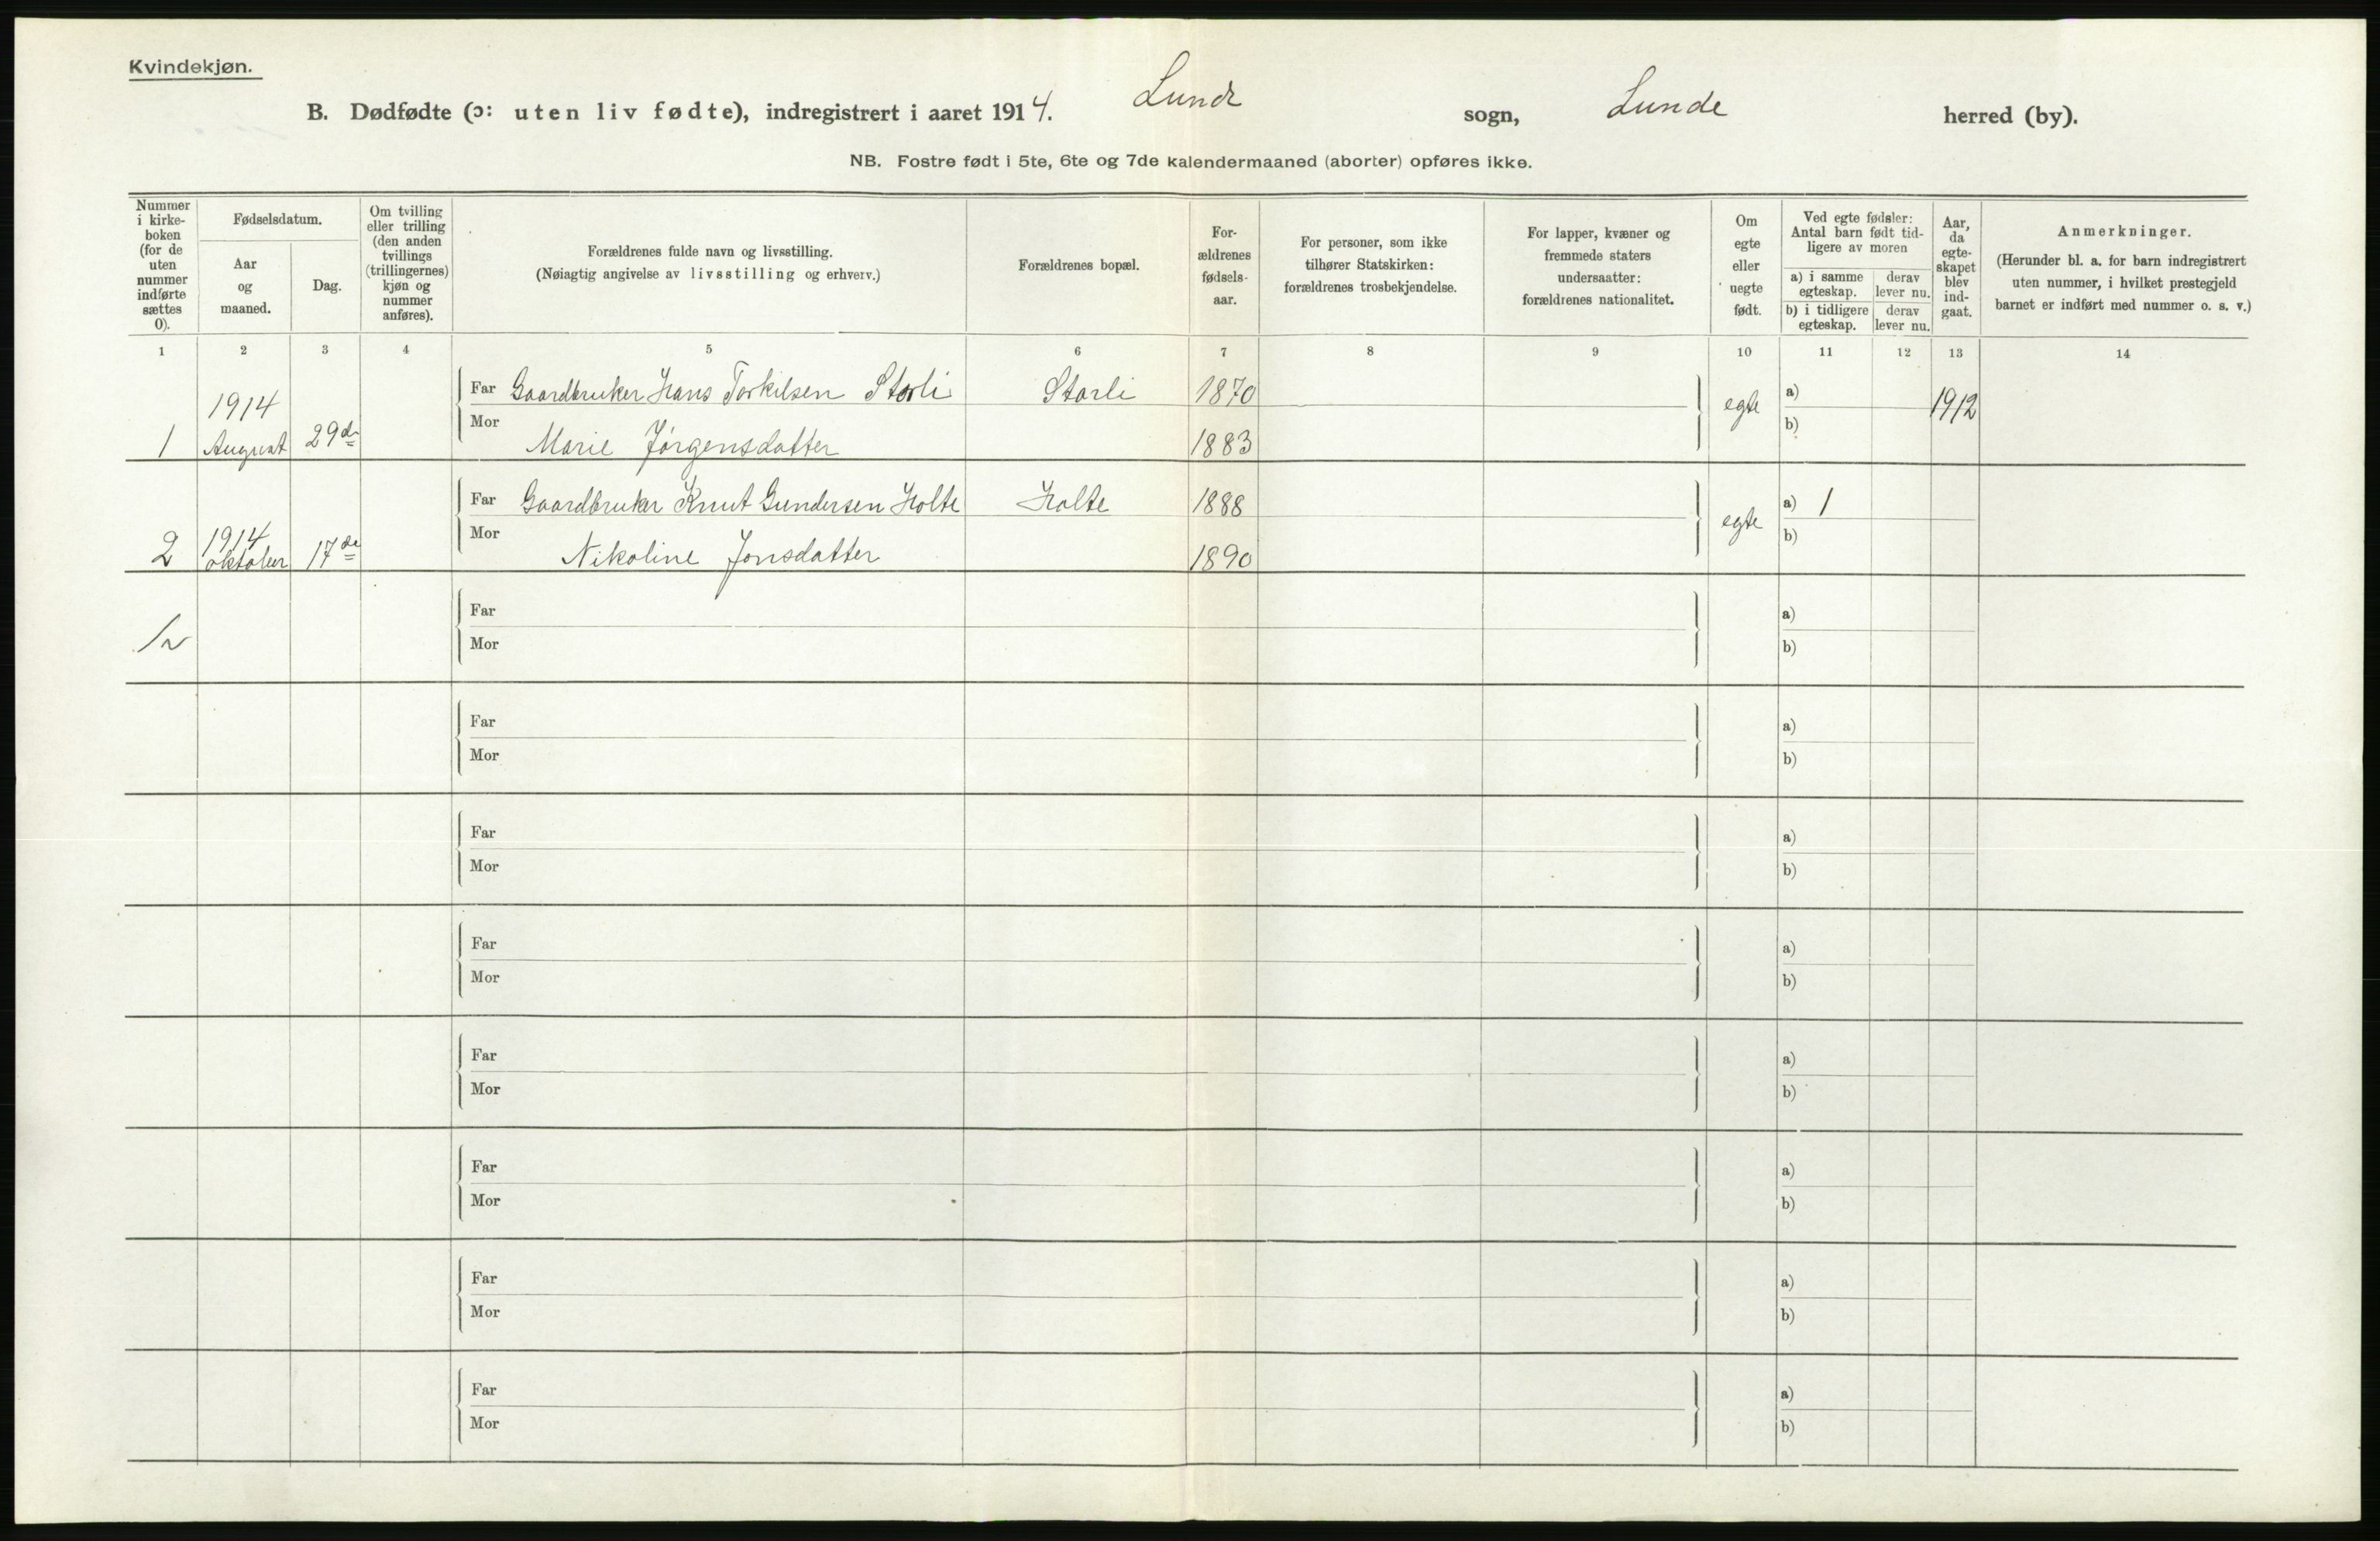 Kvindekjøn.
B. Dødfødte (ɔ: uten liv fødte), indregistrert i aaret 1914. Lunde sogn, Lunde herred (by).
NB. Fostre født i 5te, 6te og 7de kalendermaaned (aborter) opføres ikke.
Nummer i kirke- boken (for de uten nummer indførte sættes 0).
Fødselsdatum.
Aar og maaned.
Dag.
Om tvilling eller trilling (den anden tvillings (trillingernes) kjøn og nummer anføres).
Forældrenes fulde navn og livsstilling.
(Nøiagtig angivelse av livsstilling og erhverv.)
Forældrenes bopæl.
For- ældrenes fødsels- aar.
For personer, som ikke tilhører Statskirken: forældrenes trosbekjendelse.
For lapper, kvæner og fremmede staters undersaatter: forældrenes nationalitet.
Om egte eller uegte født.
Ved egte fødsler: Antal barn født tid- ligere av moren
a) i samme egteskap.
derav lever nu.
b) i tidligere egteskap.
derav lever nu.
Aar, da egte- skapet blev ind- gaat.
Anmerkninger.
(Herunder bl. a. for barn indregistrert uten nummer, i hvilket prestegjeld barnet er indført med nummer o. s. v.)
1 2 3 4 5 6 7 8 9 10 11 12 13 14
1914 Far Gaardbruker Hans Torkilsen Storli Storli 1870 egte a) 1912
1 August 29de Mor Marie Jørgensdatter 1883 b)
Far Gaardbruker Knut Gundersen Holte Holte 1888 egte a) 1
2 1914 oktober 17de Mor Nikoline Jonsdatter 1890 b)
Far a)
Mor b)
Far a)
Mor b)
Far a)
Mor b)
Far a)
Mor b)
Far a)
Mor b)
Far a)
Mor b)
Far a)
Mor b)
Far a)
Mor b)